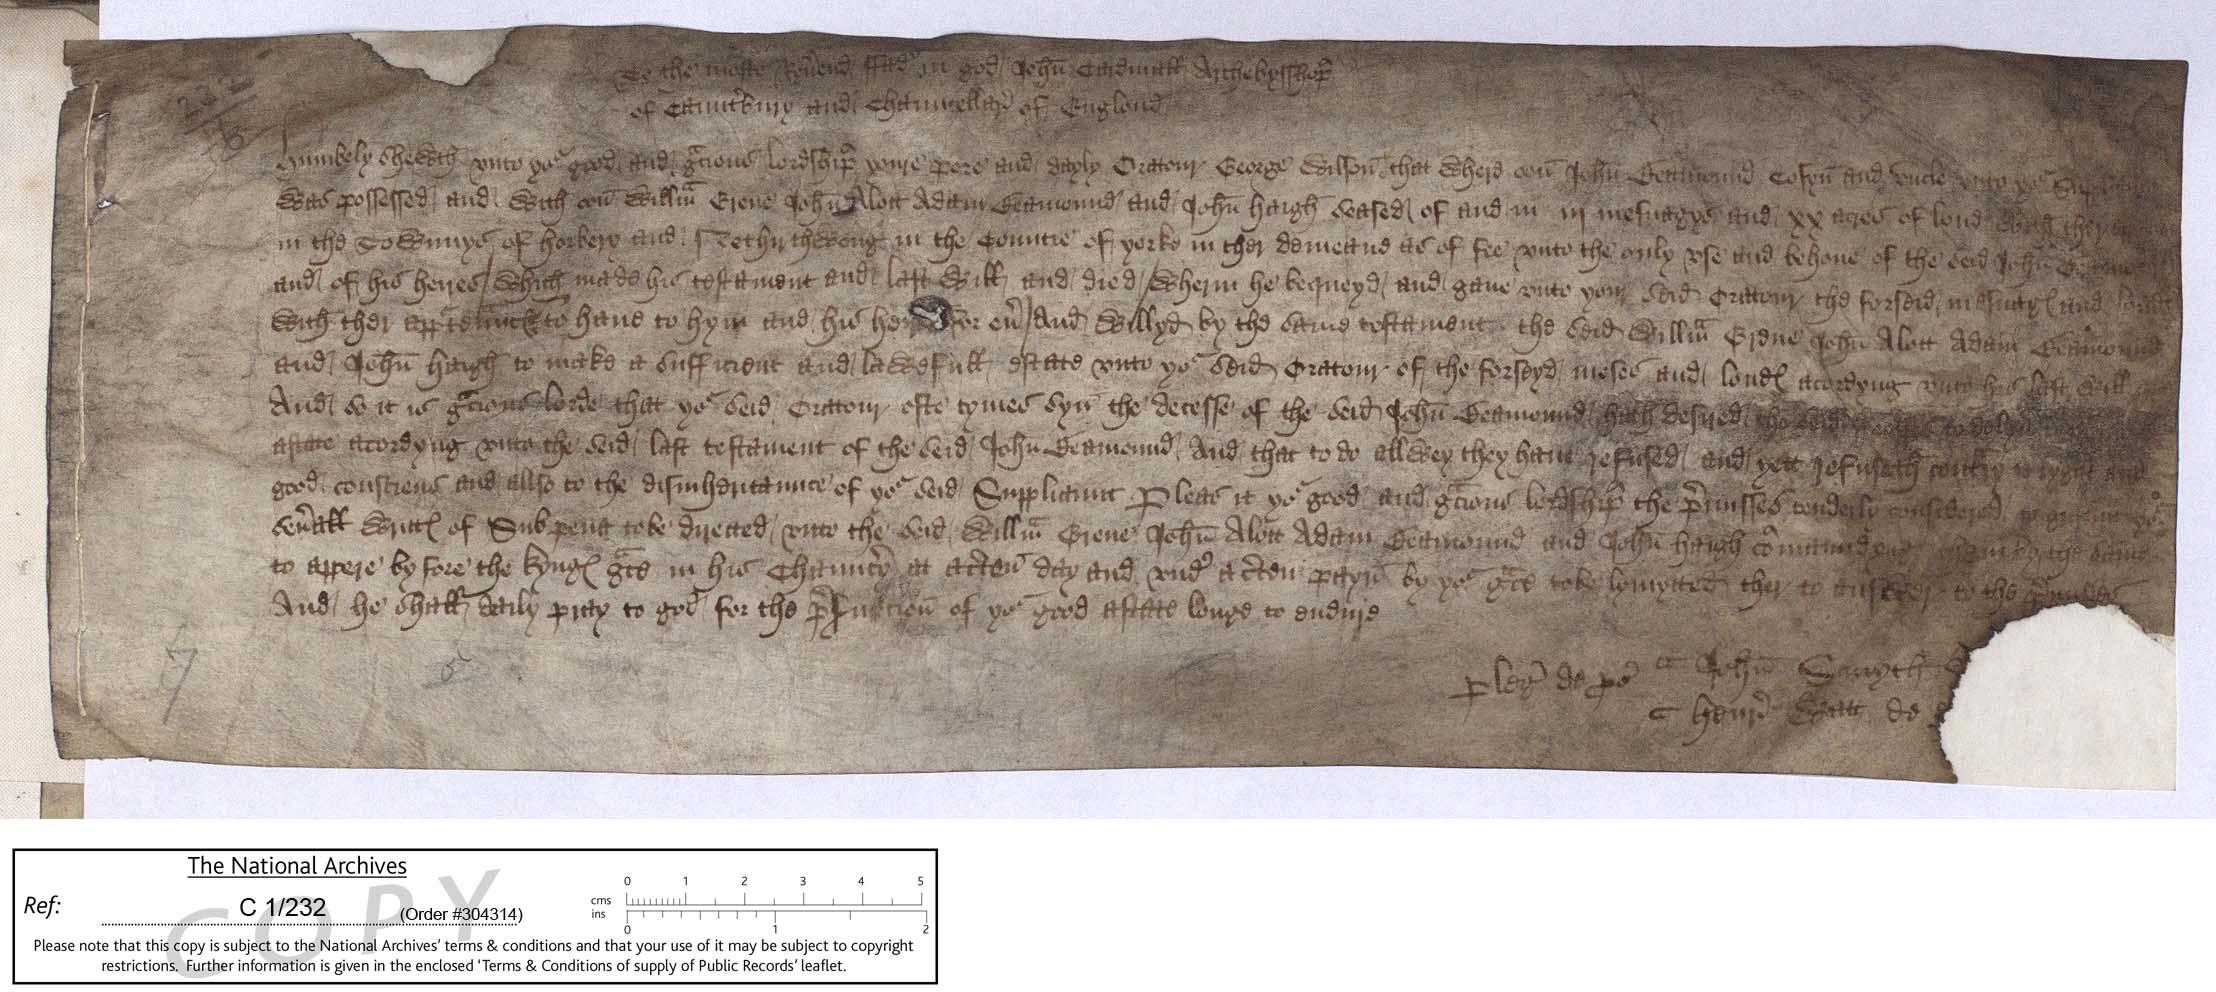 232
16
To the moste Rev̄end ffad᷑ in god John̄ Cardinall Archebysshop̄
of Cauntr̄bury and Chauncellar̄ of Englond
Humbely shewth vnto yor good and gc̄ious lordship̄ youre pore and dayly Oratour George Wilson̄ that wher on̄ John̄ Beamound Cosyn̄ and vncle vnto yor Suppliaunt
was possessed and with on̄ Willm̄ Grene John̄ Alott Adam Beamound and John̄ haigh seased of and in iij mesuagys and xx acres of lond
in the Townnys of horbery and in the Countie of yorke in ther demeane as of fee vnto the only vse and behoue of the seid John̄
and of his heires / which made his testament and last will and died / wherin he bequeyd and gaue vnto your seid Oratour the forseid mesuagꝭ and londꝭ
with ther to haue to hym and his for eū / And Willyd by the same testament the seid Willm̄ Grene John̄ Alott Adam Beamound
and John̄ haigh to make a sufficient and lawefull estate vnto yor seid Oratour of the forseyd meses and londꝭ acordyng vnto his last will
And so it is gc̄ious lorde that yor seid Oratour ofte tymes syn̄ the decesse of the seid John̄ Beamound hath desired the seid
astate acordyng vnto the seid last testament of the seid John̄ Beamound And that to do allwey they haue refused and yett refuseth contr̄y to ryght and
good consciens and allso to the disinheritaunce of yor seid Suppliaunt Pleas it yor good and gc̄ious lordship̄ the p̄misses tenderly considered to graunt yor
seūall writtꝭ of Subpena to be directed vnto the seid Willm̄ Grene John̄ Alott Adam Beamound and John̄ haigh by the same
to appere by fore the kyngꝭ gc̄e in his Chaunc̄y at a c̄ten̄ day and vnd᷑ a c̄ten payn̄ by yor gc̄e to be lymyted ther to answer to the p̄misses
And he shall daily pray to god for the of yor good astate longe to endure
7
Pleḡ de p̄s John̄ Smyth
henr̄ Watt de
The National Archives
Ref: C 1/232 (Order #304314)
COPY
cms 0 1 2 3 4 5
ins 0 1 2
Please note that this copy is subject to the National Archives’ terms & conditions and that your use of it may be subject to copyright
restrictions. Further information is given in the enclosed ‘Terms & Conditions of supply of Public Records’ leaflet.